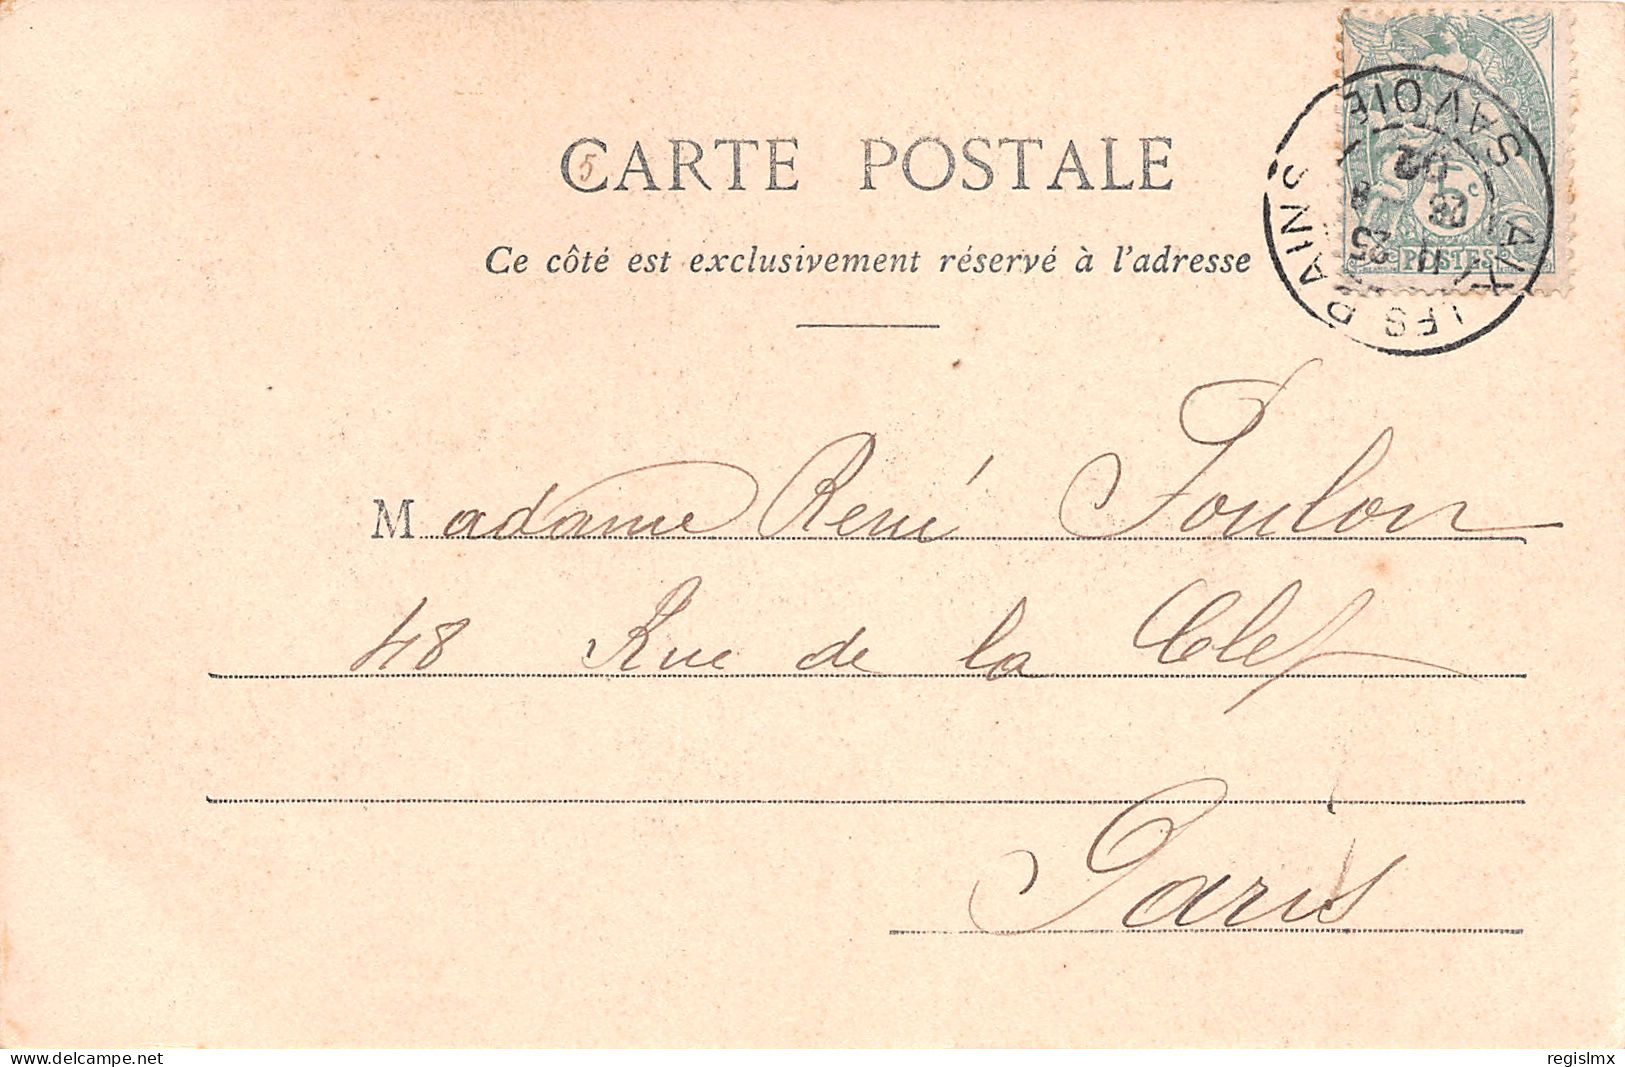 CARTE POSTALE
5
Ce côté est exclusivement réservé à l'adresse
AIX LES BAINS
SAVOIE
02
5c
POSTES
Madame René Foulon
48 Rue de la Clef
Paris
www.delcampe.net
regislmx